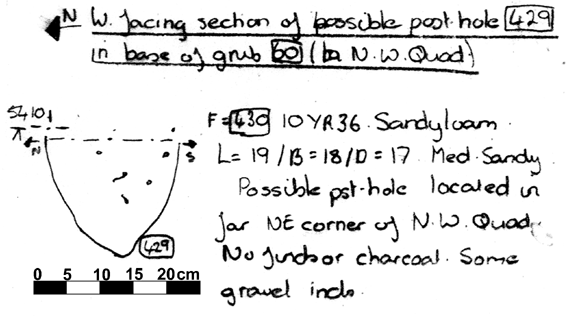 N W. facing section of possible post-hole 429
in base of grub 60 (in N.W. Quad)
5410
N
S
429
0 5 10 15 20cm
F= 430 10YR36. Sandy loam
L = 19 / B = 18 / D = 17 Med. Sandy
Possible pst-hole located in
far NE corner of N.W. Quad.
No finds or charcoal. Some
gravel incls.